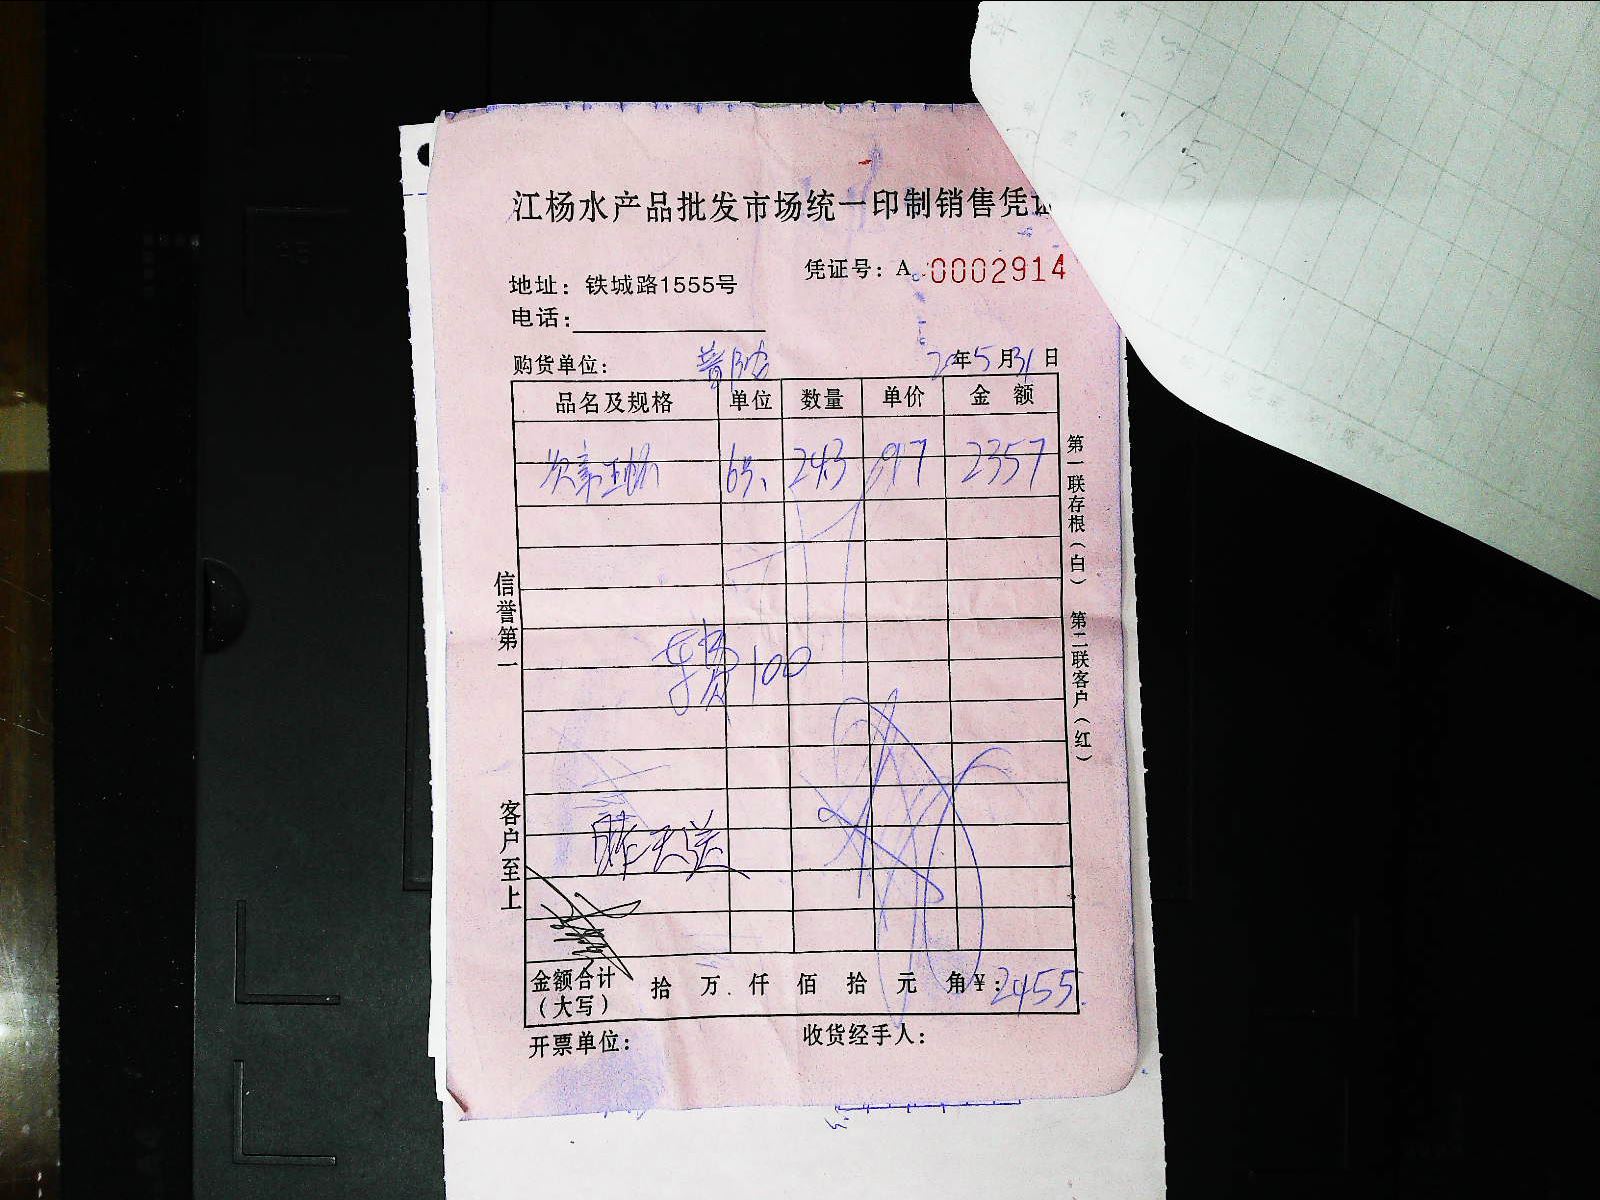 江杨水产品批发市场统一印制销售凭证
凭证号：A 0002914
地址：铁城路1555号
电话：
购货单位：
20年5月31日
品名及规格 单位 数量 单价 金额
243 97 2357
车费 100
昨天送
金额合计（大写） 拾 万 仟 佰 拾 元 角 ¥：2455
开票单位： 收货经手人：
信誉第一
客户至上
第一联存根（白） 第二联客户（红）